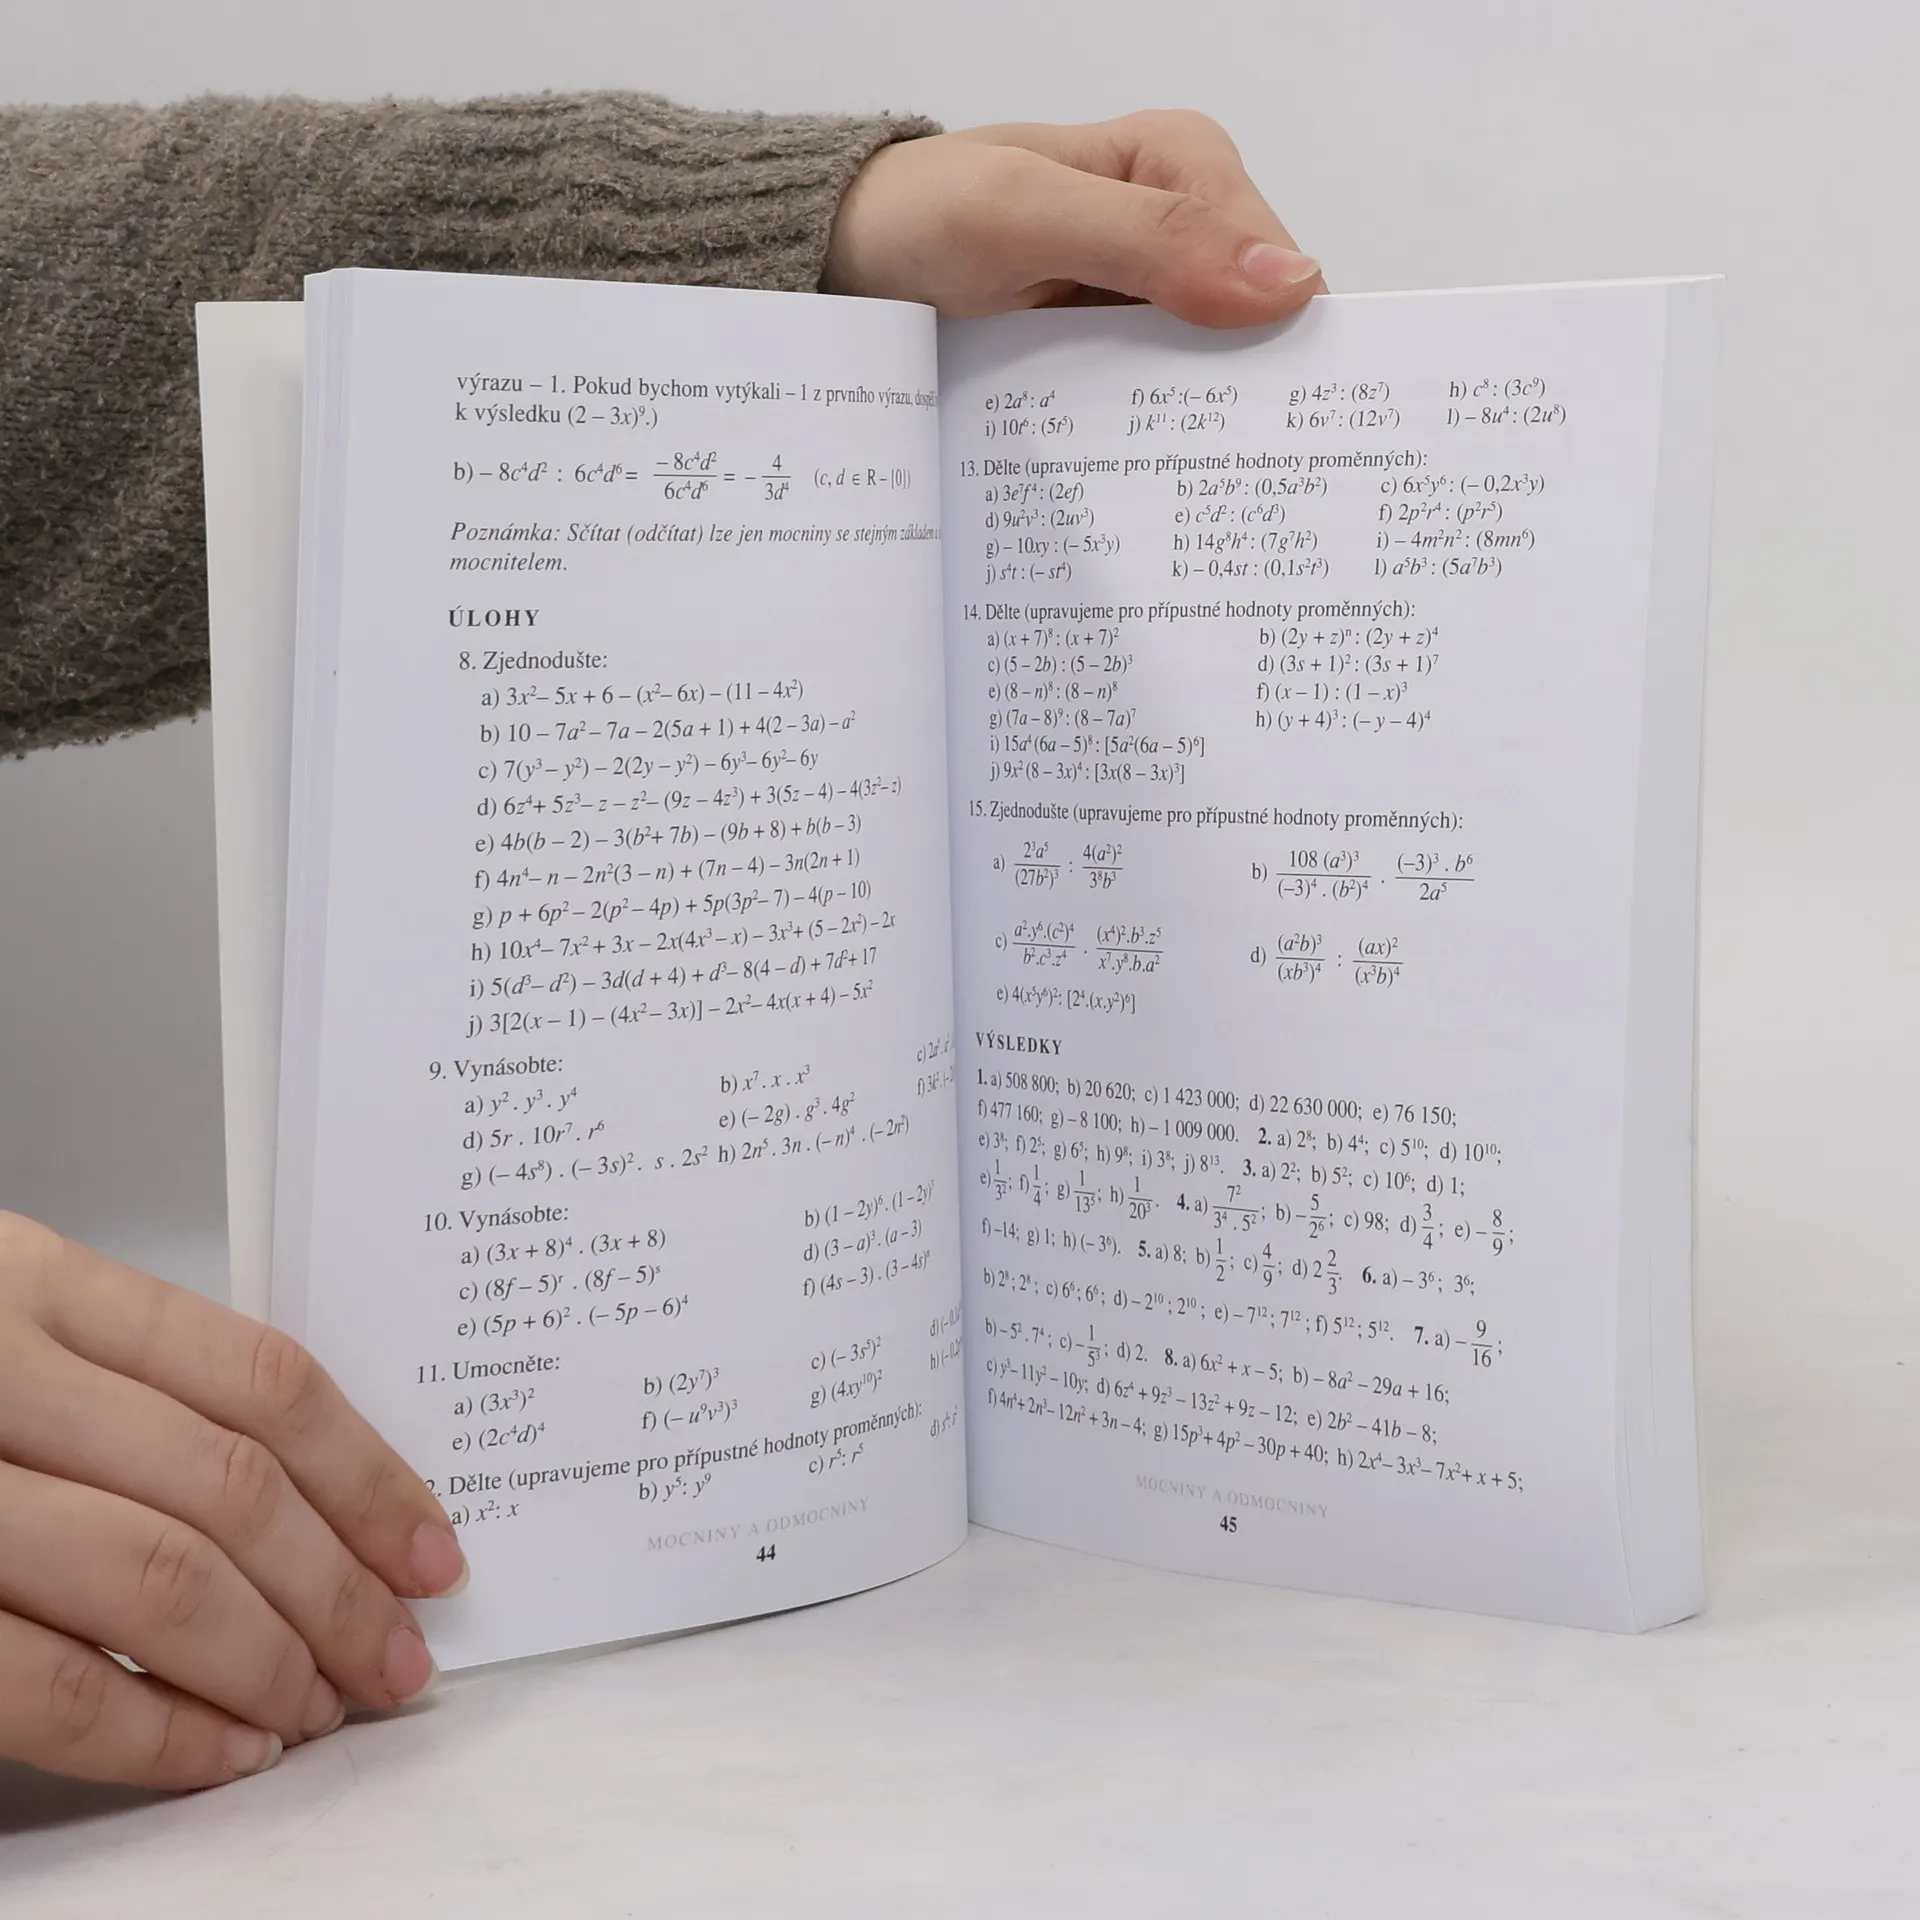 výrazu – 1. Pokud bychom vytýkali – 1 z prvního výrazu,
k výsledku (2 – 3x)⁹.)
b) – 8c⁴d² : 6c⁴d⁶ = – 8c⁴d² / 6c⁴d⁶ = – 4 / 3d⁴ (c, d ∈ R – {0})
Poznámka: Sčítat (odčítat) lze jen mocniny se stejným základem
mocnitelem.
ÚLOHY
8. Zjednodušte:
a) 3x² – 5x + 6 – (x² – 6x) – (11 – 4x²)
b) 10 – 7a² – 7a – 2(5a + 1) + 4(2 – 3a) – a²
c) 7(y³ – y²) – 2(2y – y²) – 6y³ – 6y² – 6y
d) 6z⁴ + 5z³ – z – z² – (9z – 4z³) + 3(5z – 4) – 4(3z² – z)
e) 4b(b – 2) – 3(b² + 7b) – (9b + 8) + b(b – 3)
f) 4n⁴ – n – 2n²(3 – n) + (7n – 4) – 3n(2n + 1)
g) p + 6p² – 2(p² – 4p) + 5p(3p² – 7) – 4(p – 10)
h) 10x⁴ – 7x² + 3x – 2x(4x³ – x) – 3x³ + (5 – 2x²) – 2x
i) 5(d³ – d²) – 3d(d + 4) + d³ – 8(4 – d) + 7d² + 17
j) 3[2(x – 1) – (4x² – 3x)] – 2x² – 4x(x + 4) – 5x²
9. Vynásobte:
a) y² . y³ . y⁴ b) x⁷ . x . x³ c) 2a² .
d) 5r . 10r⁷ . r⁶ e) (– 2g) . g³ . 4g² f)
g) (– 4s⁸) . (– 3s)² . s . 2s² h) 2n⁵ . 3n . (– n)⁴ . (– 2n²)
10. Vynásobte:
a) (3x + 8)⁴ . (3x + 8) b) (1 – 2y)⁶ . (1 – 2y)³
c) (8f – 5)ʳ . (8f – 5)ˢ d) (3 – a)³ . (a – 3)
e) (5p + 6)² . (– 5p – 6)⁴ f) (4s – 3) . (3 – 4s)ⁿ
11. Umocněte:
a) (3x³)² b) (2y⁷)³ c) (– 3s⁵)² d)
e) (2c⁴d)⁴ f) (– u⁹v³)³ g) (4xy¹⁰)² h)
2. Dělte (upravujeme pro přípustné hodnoty proměnných):
a) x² : x b) y⁵ : y⁹ c) r⁵ : r⁵ d)
MOCNINY A ODMOCNINY
44
e) 2a⁸ : a⁴ f) 6x⁵ : (– 6x⁵) g) 4z³ : (8z⁷) h) c⁸ : (3c⁹)
i) 10t⁶ : (5t⁵) j) k¹¹ : (2k¹²) k) 6v⁷ : (12v⁷) l) – 8u⁴ : (2u⁸)
13. Dělte (upravujeme pro přípustné hodnoty proměnných):
a) 3e⁷f⁴ : (2ef) b) 2a⁵b⁹ : (0,5a³b²) c) 6x⁵y⁶ : (– 0,2x³y)
d) 9u²v³ : (2uv³) e) c⁵d² : (c⁶d³) f) 2p²r⁴ : (p²r⁵)
g) – 10xy : (– 5x³y) h) 14g⁸h⁴ : (7g⁷h²) i) – 4m²n² : (8mn⁶)
j) s⁴t : (– st⁴) k) – 0,4st : (0,1s²t³) l) a⁵b³ : (5a⁷b³)
14. Dělte (upravujeme pro přípustné hodnoty proměnných):
a) (x + 7)⁸ : (x + 7)² b) (2y + z)ⁿ : (2y + z)⁴
c) (5 – 2b) : (5 – 2b)³ d) (3s + 1)² : (3s + 1)⁷
e) (8 – n)⁸ : (8 – n)⁸ f) (x – 1) : (1 – x)³
g) (7a – 8)⁹ : (8 – 7a)⁷ h) (y + 4)³ : (– y – 4)⁴
i) 15a⁴(6a – 5)⁸ : [5a²(6a – 5)⁶]
j) 9x²(8 – 3x)⁴ : [3x(8 – 3x)³]
15. Zjednodušte (upravujeme pro přípustné hodnoty proměnných):
a) 2³a⁵ / (27b²)³ : 4(a²)² / 3⁸b³ b) 108 (a³)³ / (–3)⁴ . (b²)⁴ . (–3)³ . b⁶ / 2a⁵
c) a².y⁶.(c²)⁴ / b².c³.z⁴ . (x⁴)².b³.z⁵ / x⁷.y⁸.b.a² d) (a²b)³ / (xb³)⁴ : (ax)² / (x³b)⁴
e) 4(x⁵y⁶)² : [2⁴.(x.y²)⁶]
VÝSLEDKY
1. a) 508 800; b) 20 620; c) 1 423 000; d) 22 630 000; e) 76 150;
f) 477 160; g) – 8 100; h) – 1 009 000. 2. a) 2⁸; b) 4⁴; c) 5¹⁰; d) 10¹⁰;
e) 3⁸; f) 2⁵; g) 6⁵; h) 9⁸; i) 3⁸; j) 8¹³. 3. a) 2²; b) 5²; c) 10⁶; d) 1;
e) 1/3²; f) 1/4; g) 1/13⁵; h) 1/20³. 4. a) 7²/3⁴ . 5²; b) – 5/2⁶; c) 98; d) 3/4; e) – 8/9;
f) –14; g) 1; h) (– 3⁶). 5. a) 8; b) 1/2; c) 4/9; d) 2 2/3. 6. a) – 3⁶; 3⁶;
b) 2⁸; 2⁸; c) 6⁶; 6⁶; d) – 2¹⁰; 2¹⁰; e) – 7¹²; 7¹²; f) 5¹²; 5¹². 7. a) – 9/16;
b) – 5² . 7⁴; c) – 1/5³; d) 2. 8. a) 6x² + x – 5; b) – 8a² – 29a + 16;
c) y³ – 11y² – 10y; d) 6z⁴ + 9z³ – 13z² + 9z – 12; e) 2b² – 41b – 8;
f) 4n⁴ + 2n³ – 12n² + 3n – 4; g) 15p³ + 4p² – 30p + 40; h) 2x⁴ – 3x³ – 7x² + x + 5;
MOCNINY A ODMOCNINY
45